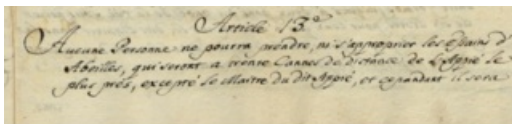 Article 13.º
Aucune Personne ne pourra prendre, ni s'approprier les Essains d'
Abeilles, qui seront a trente Cannes de distance de L'Appié le
plus près, excepté le Maitre du dit Appié, et cependant il sera